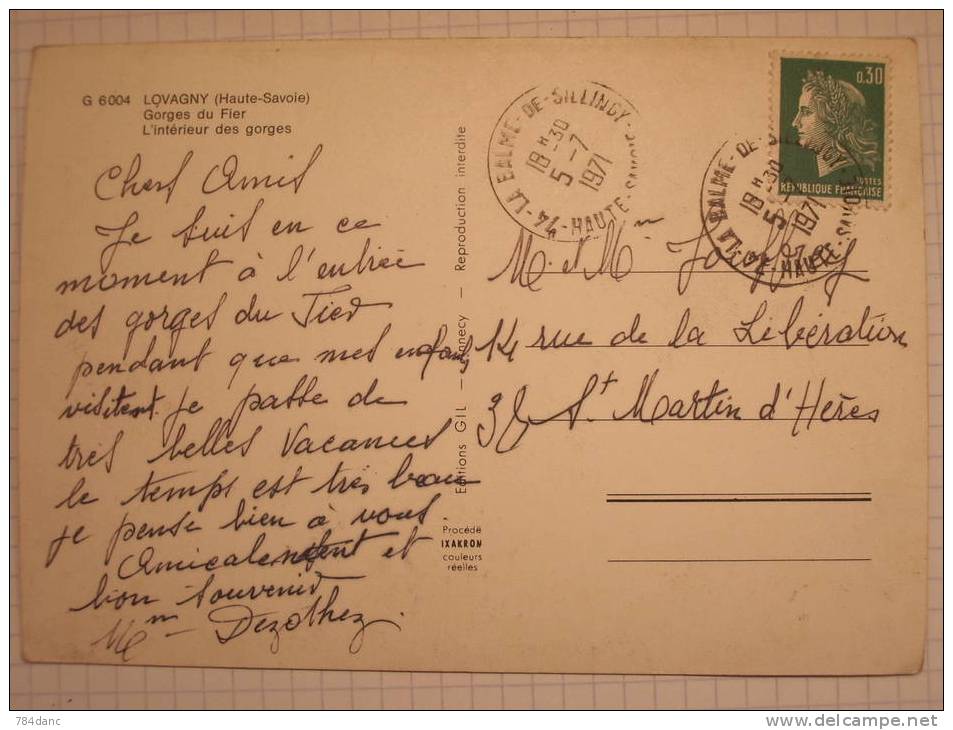 G 6004 LOVAGNY (Haute-Savoie)
Gorges du Fier
L'intérieur des gorges
Chers Amis
Je suis en ce
moment à l'entrée
des gorges du Fier
pendant que mes enfants
visitent je passe de
très belles vacances
le temps est très beau
je pense bien à vous.
Amicalement et
bon souvenir
Mm Dezothez.
Editions GIL - Annecy - Reproduction interdite
Procédé
IXAKROM
couleurs
réelles
LA BALME-DE-SILLINGY
18H-30
5-7
1971
74-HAUTE-SAVOIE
0,30
POSTES
REPUBLIQUE FRANÇAISE
LA BALME-DE-SILLINGY
18H-30
5-7
1971
74-HAUTE-SAVOIE
M. et Mm
14 rue de la Libération
38 St Martin d'Hères
784danc
delcampe.net